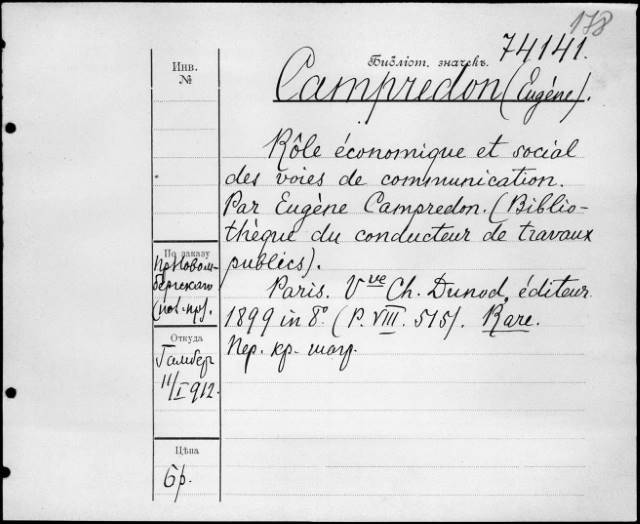 178
74141.
Библіот. значекъ.
Инв.
№
Campredon (Eugène).
Rôle économique et social
des voies de communication.
Par Eugène Campredon. (Biblio-
thèque du conducteur de travaux
publics).
Paris. Vve Ch. Dunod, éditeur.
1899 in 8º. (P. VIII. 515). Rare.
Пер. кр. шагр.
По заказу
Пр. Новом-
бергскаго
Откуда
Гамбер
11/I 912.
Цѣна
6р.